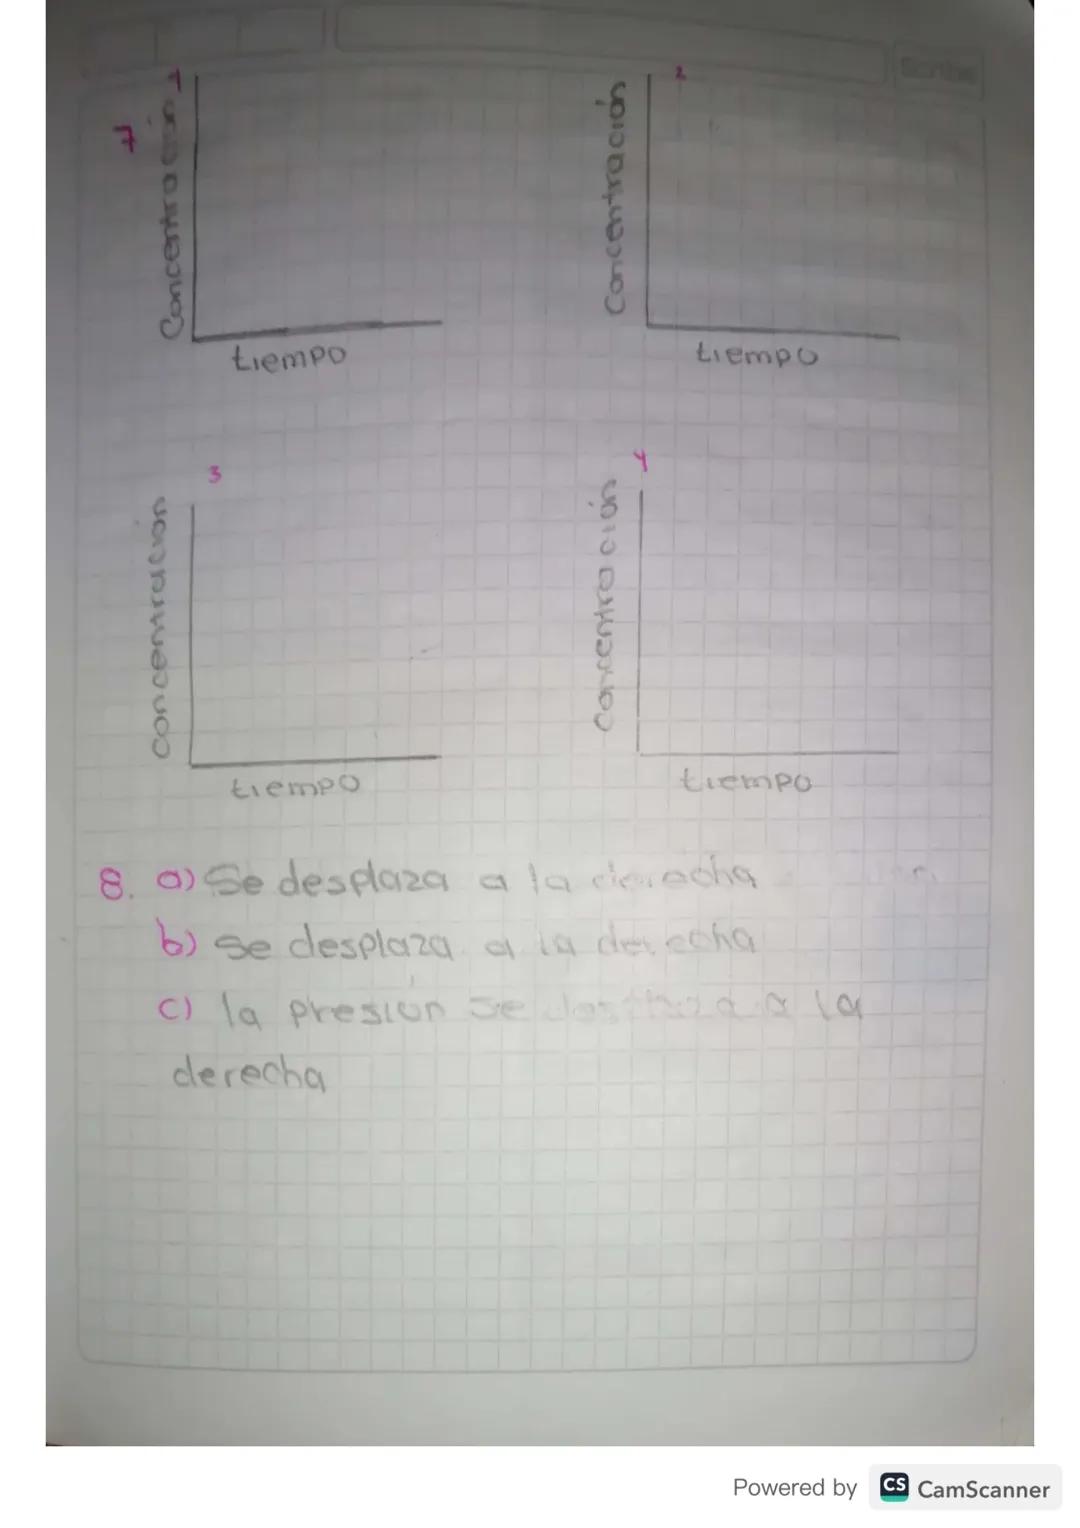 7
1
Concentración
tiempo
2
Concentración
tiempo
3
concentración
tiempo
4
Concentración
tiempo
8. a) Se desplaza a la derecha
b) se desplaza a la derecha
c) la presión se a la
derecha
Scribe
Powered by CS CamScanner